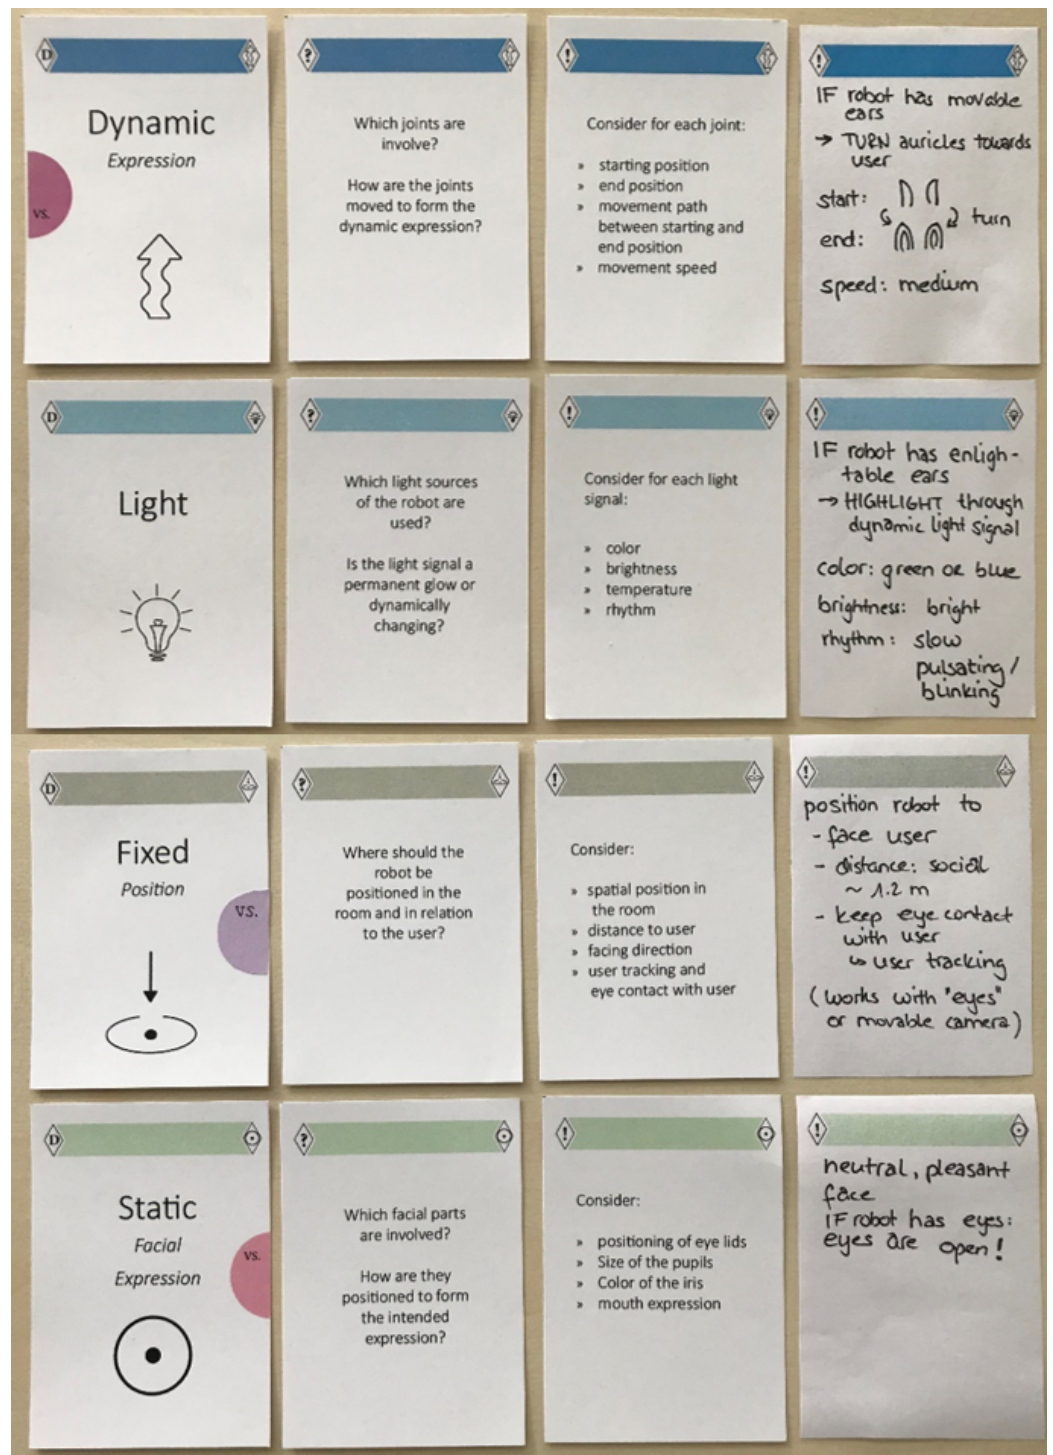 D
Dynamic
Expression
VS.
?
Which joints are
involve?
How are the joints
moved to form the
dynamic expression?
!
Consider for each joint:
» starting position
» end position
» movement path
between starting and
end position
» movement speed
!
IF robot has movable
ears
→ TURN auricles towards
user
start:
turn
end:
speed: medium
D
Light
?
Which light sources
of the robot are
used?
Is the light signal a
permanent glow or
dynamically
changing?
!
Consider for each light
signal:
» color
» brightness
» temperature
» rhythm
!
IF robot has enligh-
table ears
→ HIGHLIGHT through
dynamic light signal
color: green or blue
brightness: bright
rhythm: slow
pulsating/
blinking
D
Fixed
Position
VS.
?
Where should the
robot be
positioned in the
room and in relation
to the user?
!
Consider:
» spatial position in
the room
» distance to user
» facing direction
» user tracking and
eye contact with user
!
position robot to
- face user
- distance: social
~ 1.2 m
- keep eye contact
with user
↳ user tracking
(works with "eyes"
or movable camera)
D
Static
Facial
Expression
VS.
?
Which facial parts
are involved?
How are they
positioned to form
the intended
expression?
!
Consider:
» positioning of eye lids
» Size of the pupils
» Color of the iris
» mouth expression
!
neutral, pleasant
face
IF robot has eyes:
eyes are open!